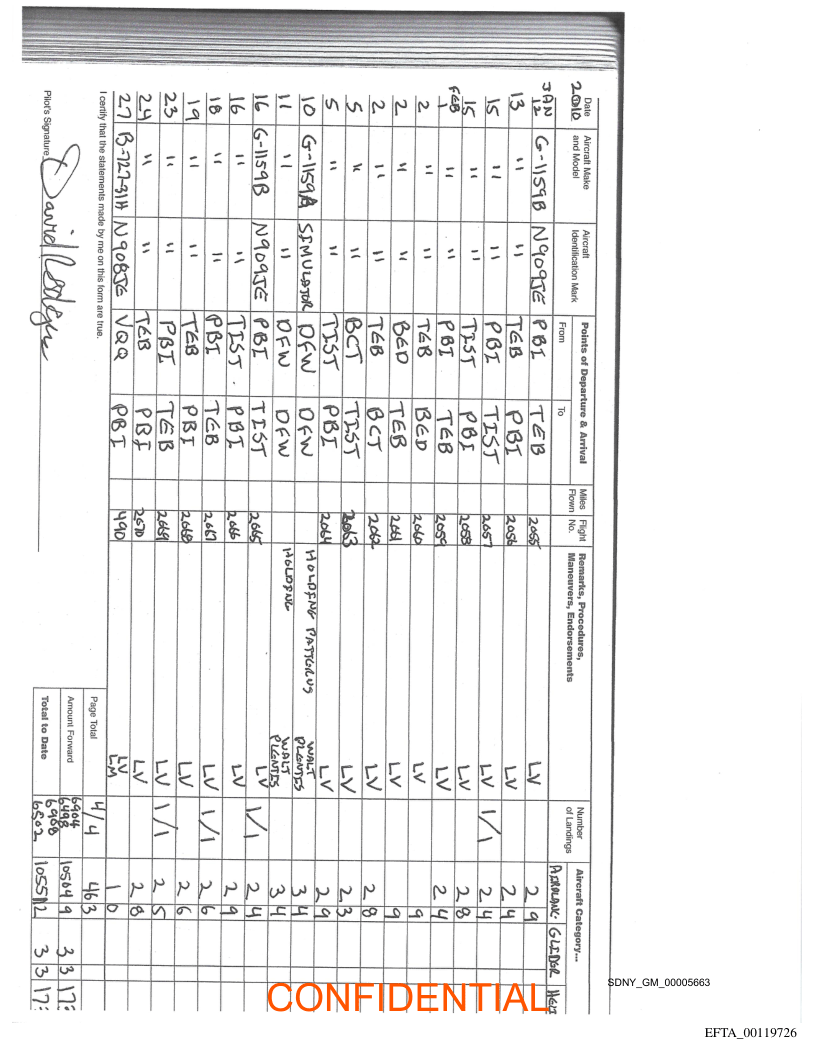 Date Aircraft Make and Model Aircraft Identification Mark Points of Departure & Arrival From To Miles Flown Flight No. Remarks, Procedures, Maneuvers, Endorsements Number of Landings Aircraft Category...
2010 AIRPLANE GLIDER HELI
JAN 12 G-1159B N909JE PBI TEB 2055 LV 2 9
13 " " TEB PBI 2056 LV 2 4
15 " " PBI TIST 2057 LV 1/1 2 4
15 " " TIST PBI 2058 LV 2 8
FEB 1 " " PBI TEB 2059 LV 2 4
2 " " TEB BED 2060 LV 9
2 " " BED TEB 2061 LV 9
2 " " TEB BCT 2062 LV 2 8
5 " " BCT TIST 2063 LV 2 3
5 " " TIST PBI 2064 LV 2 9
10 G-1159B SIMULATOR DFW DFW HOLDING PATTERNS WALT 3 4
11 " " DFW DFW HOLDING WALT 3 4
16 G-1159B N909JE PBI TIST 2065 LV 1/1 2 4
16 " " TIST PBI 2066 LV 2 9
18 " " PBI TEB 2067 LV 1/1 2 6
19 " " TEB PBI 2068 LV 2 6
23 " " PBI TEB 2069 LV 1/1 2 5
24 " " TEB PBI 2070 LV 2 8
27 B-727-31H N908JE VQQ PBI 490 LV LM 1 0
I certify that the statements made by me on this form are true.
Page Total 4/4 46 3
Amount Forward 6904 6498 10504 9 3 3 17
Pilot's Signature David Rodgers
Total to Date 6908 6502 10551 2 3 3 17
CONFIDENTIAL
SDNY_GM_00005663
EFTA_00119726